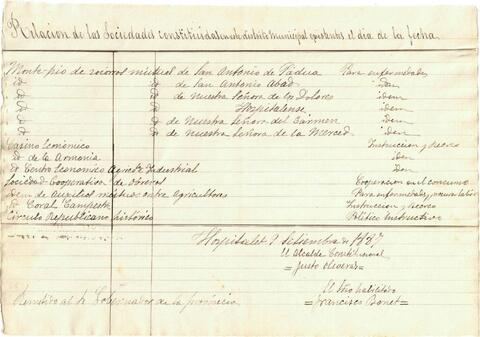 Relacion de las Sociedades constituidas en este distrito municipal existentes el dia de la fecha
Monte-pio de socorros mutuos de San Antonio de Padua Para enfermedades
id id de San Antonio Abad idem
id id de nuestra Señora de los Dolores idem
id id Hospitalense idem
id id de nuestra Señora del Carmen idem
id id de nuestra Señora de la Merced idem
Casino Económico Instruccion y Recreo
id de la Armonia idem
id Centro Economico Agricola Industrial idem
Sociedad Cooperativa de obreros Cooperacion en el consumo
Idem de Auxilios mutuos entre Agricultores Para enfermedades
id Coral Campestre Instruccion y Recreo
Circulo Republicano histórico Politico Instructivo
Hospitalet 9 Setiembre de 1887
El Alcalde Constitucional
=Justo Oliveras=
El Srio habilitado
=Francisco Bonet=
Remitido al Sr Gobernador de la provincia